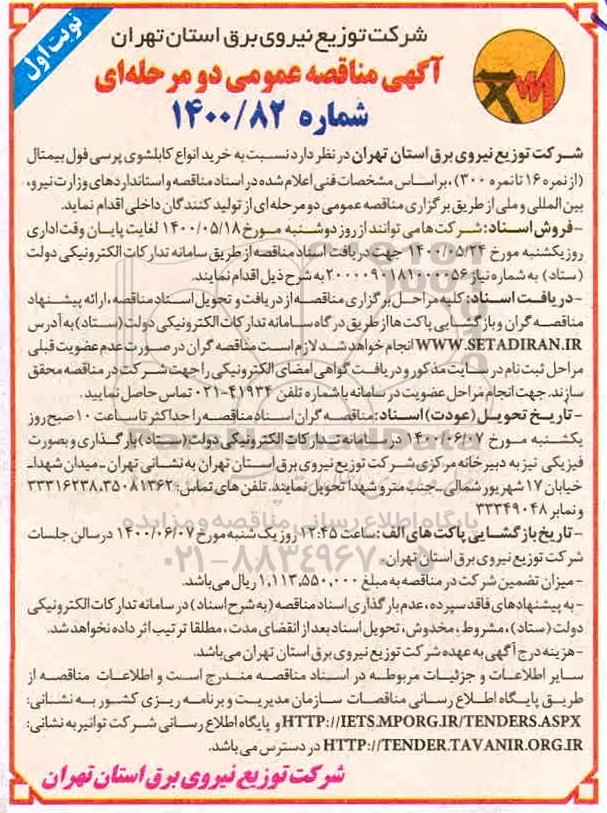 نوبت اول
شرکت توزیع نیروی برق استان تهران
آگهی مناقصه عمومی دو مرحله‌ای
شماره ۱۴۰۰/۸۲
شرکت توزیع نیروی برق استان تهران در نظر دارد نسبت به خرید انواع کابلشوی پرسی فول بیمتال
(از نمره ۱۶ تا نمره ۳۰۰)، براساس مشخصات فنی اعلام شده در اسناد مناقصه و استانداردهای وزارت نیرو،
بین المللی و ملی از طریق برگزاری مناقصه عمومی دو مرحله ای از تولید کنندگان داخلی اقدام نماید.
-فروش اسناد: شرکت ها می توانند از روز دوشنبه مورخ ۱۴۰۰/۰۵/۱۸ لغایت پایان وقت اداری
روز یکشنبه مورخ ۱۴۰۰/۰۵/۲۴ جهت دریافت اسناد مناقصه از طریق سامانه تدارکات الکترونیکی دولت
(ستاد) به شماره نیاز ۲۰۰۰۰۹۰۱۸۱۰۰۰۰۵۶ به شرح ذیل اقدام نمایند.
-دریافت اسناد: کلیه مراحل برگزاری مناقصه از دریافت و تحویل اسناد مناقصه، ارائه پیشنهاد
مناقصه گران و بازگشایی پاکت ها از طریق درگاه سامانه تدارکات الکترونیکی دولت (ستاد) به آدرس
WWW.SETADIRAN.IR انجام خواهد شد. لازم است مناقصه گران در صورت عدم عضویت قبلی
مراحل ثبت نام در سایت مذکور و دریافت گواهی امضای الکترونیکی را جهت شرکت در مناقصه محقق
سازند. جهت انجام مراحل عضویت در سامانه با شماره تلفن ۴۱۹۳۴-۰۲۱ تماس حاصل نمایید.
-تاریخ تحویل (عودت) اسناد: مناقصه گران اسناد مناقصه را حداکثر تا ساعت ۱۰ صبح روز
یکشنبه مورخ ۱۴۰۰/۰۶/۰۷ در سامانه تدارکات الکترونیکی دولت (ستاد) بارگذاری و بصورت
فیزیکی نیز به دبیرخانه مرکزی شرکت توزیع نیروی برق استان تهران به نشانی تهران-میدان شهدا-
خیابان ۱۷ شهریور شمالی-جنب مترو شهدا تحویل نمایند. تلفن های تماس: ۳۵۰۸۱۳۶۲، ۳۳۳۱۶۲۳۸
و نمابر ۳۳۳۴۹۰۴۸
-تاریخ بازگشایی پاکت های الف: ساعت ۱۲:۴۵ روز یک شنبه مورخ ۱۴۰۰/۰۶/۰۷ در سالن جلسات
شرکت توزیع نیروی برق استان تهران.
-میزان تضمین شرکت در مناقصه به مبلغ ۱,۱۱۳,۵۵۰,۰۰۰ ریال می باشد.
-به پیشنهادهای فاقد سپرده، عدم بارگذاری اسناد مناقصه (به شرح اسناد) در سامانه تدارکات الکترونیکی
دولت (ستاد)، مشروط، مخدوش، تحویل اسناد بعد از انقضای مدت، مطلقا ترتیب اثر داده نخواهد شد.
-هزینه درج آگهی به عهده شرکت توزیع نیروی برق استان تهران می باشد.
سایر اطلاعات و جزئیات مربوطه در اسناد مناقصه مندرج است و اطلاعات مناقصه از
طریق پایگاه اطلاع رسانی مناقصات سازمان مدیریت و برنامه ریزی کشور به نشانی:
HTTP://IETS.MPORG.IR/TENDERS.ASPX و پایگاه اطلاع رسانی شرکت توانیر به نشانی:
HTTP://TENDER.TAVANIR.ORG.IR در دسترس می باشد.
شرکت توزیع نیروی برق استان تهران
ParsNamadData
پایگاه اطلاع رسانی مناقصه و مزایده
۰۲۱-۸۸۳۴۹۶۷۰-۵